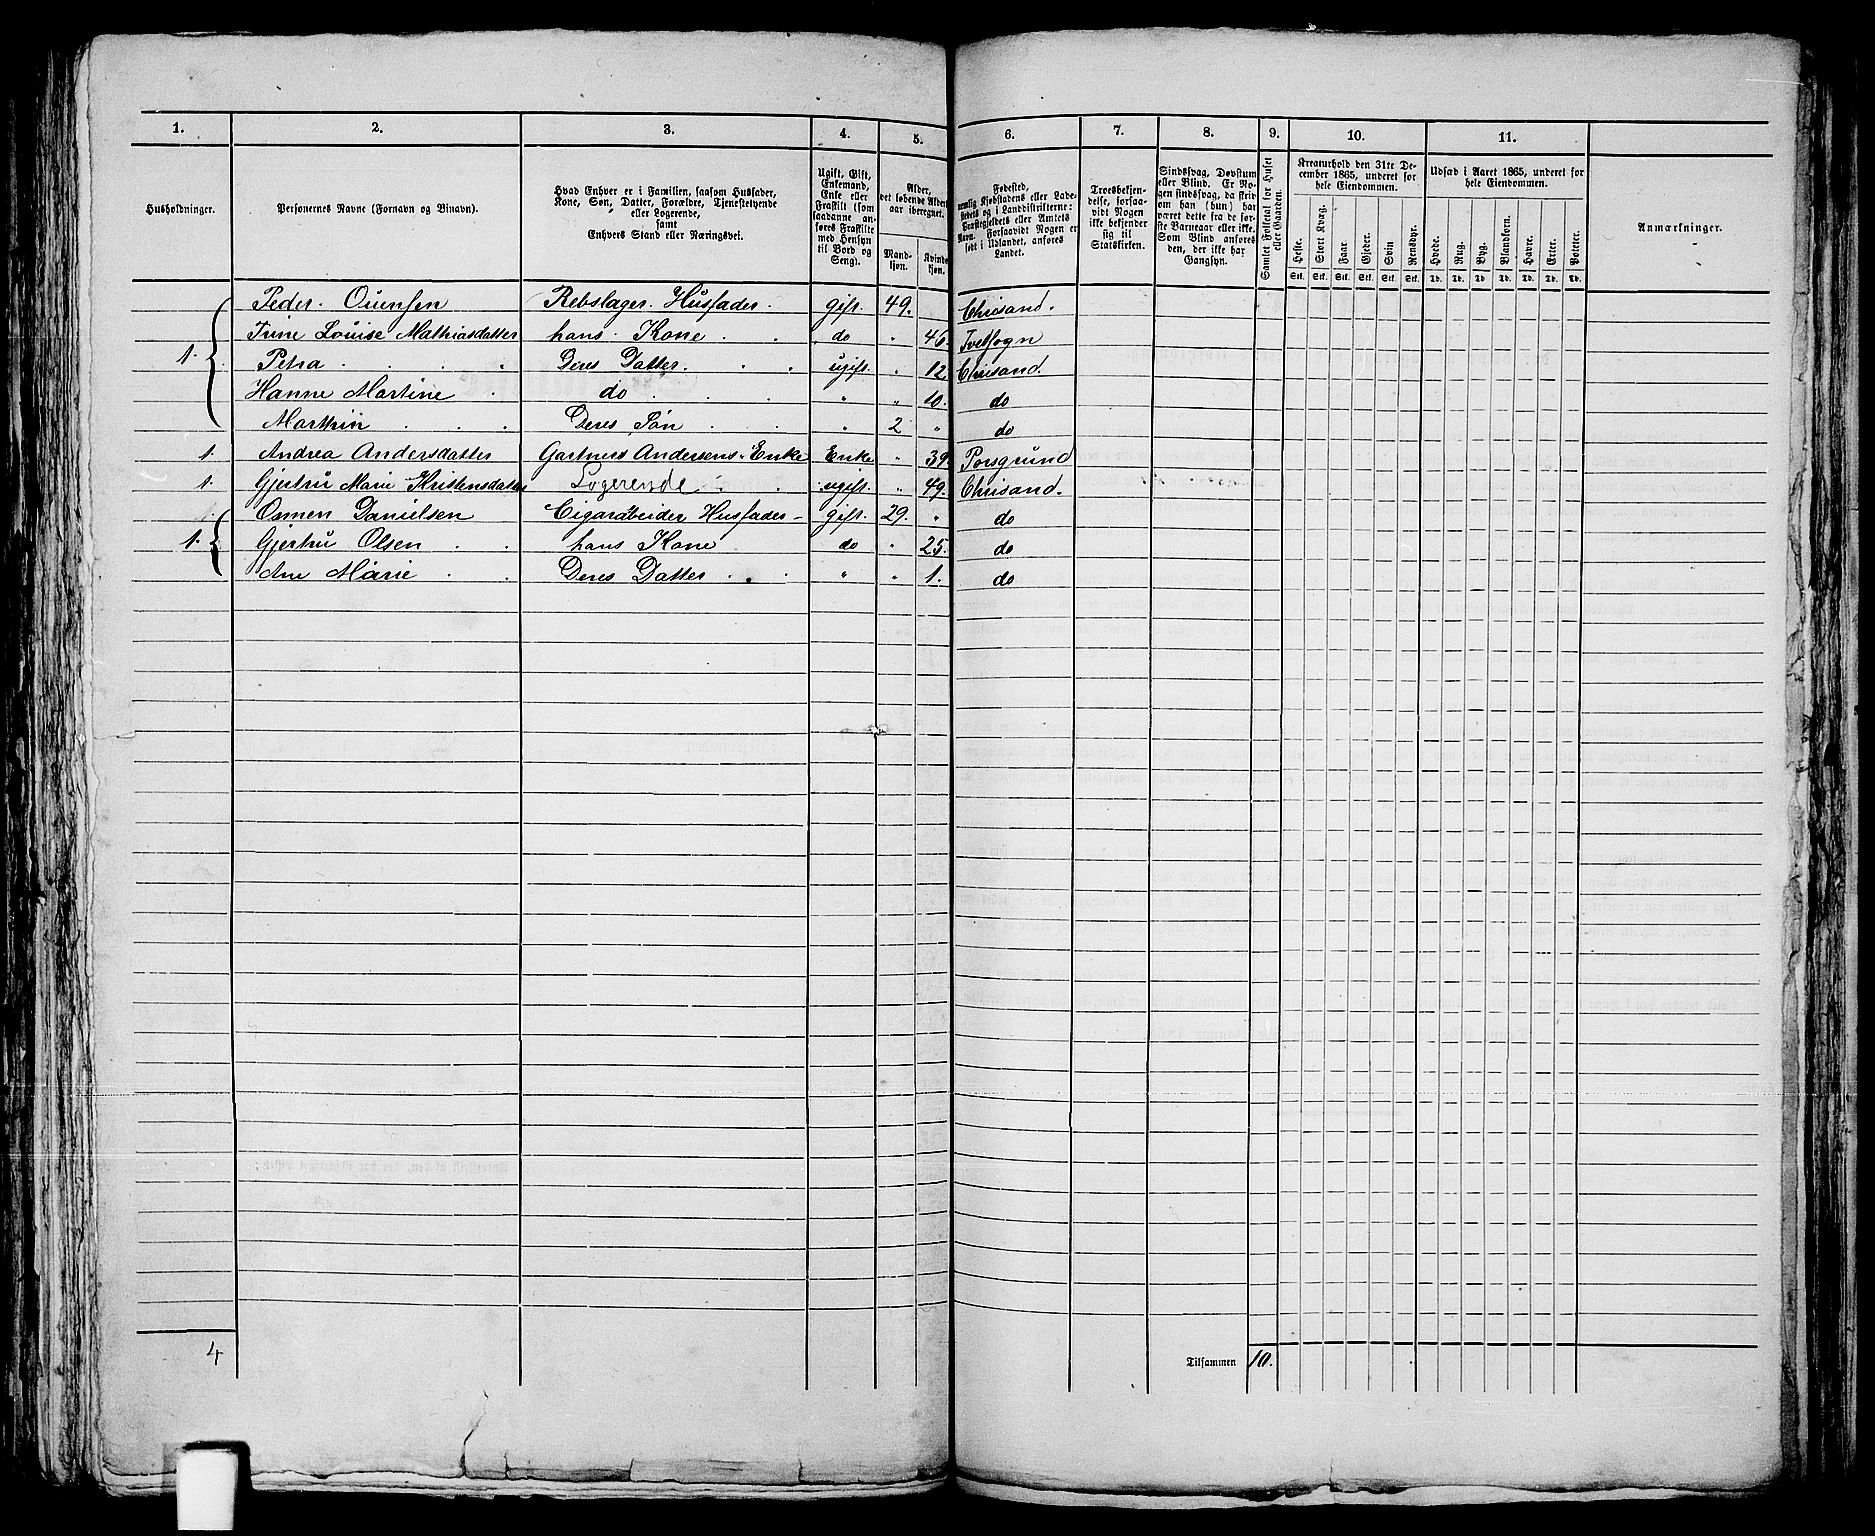 1. 2. 3. 4. 5. 6. 7. 8. 9. 10. 11.
Husholdninger.
Personernes Navne (Fornavn og Binavn).
Hvad Enhver er i Familien, saasom Husfader,
Kone, Søn, Datter, Forældre, Tjenestetyende
eller Logerende,
samt
Enhvers Stand eller Næringsvei.
Ugift, Gift,
Enkemand,
Enke eller
Fraskilt (som
saadanne an-
føres Fraskilte
med Hensyn
til Bord og
Seng).
Alder,
det løbende Alders-
aar iberegnet.
Mand-
kjøn.
Kvinde-
kjøn.
Fødested,
nemlig Kjøbstadens eller Lade-
stedets og i Landdistrikterne:
Præstegjeldets eller Amtets
Navn. Forsaavidt Nogen er
født i Udlandet, anføres
Landet.
Troesbekjen-
delse, forsaa-
vidt Nogen
ikke bekjender
sig til
Statskirken.
Sindssvag, Døvstum
eller Blind. Er No-
gen sindssvag, da skriv
om han (hun) har
været dette fra de før-
ste Barneaar eller ikke.
Som Blind anføres
den, der ikke har
Gangsyn.
Samlet Folketal for Huset
eller Gaarden.
Kreaturhold den 31te De-
cember 1865, underet for
hele Eiendommen.
Heste. Stort Kvæg. Faar. Gjeder. Svin Rensdyr.
Stk. Stk. Stk. Stk. Stk. Stk.
Udsæd i Aaret 1865, underet for
hele Eiendommen.
Hvede. Rug. Byg. Blandkorn. Havre. Erter. Poteter.
Td. Td. Td. Td. Td. Td. Td.
Anmærkninger.
Peder. Ouensen Rebslager. Husfader. gift. 49. Chrisand.
Trine Louise Mathiasdatter hans. Kone do " 46 Tveitsogn
1. Petra Deres Datter. ugift. " 12 Chrisand.
Hanne Martine do " " 10. do
Marthin Deres Søn " 2 " do
1. Andrea Andersdatter Gartners Andersens Enke Enke " 39. Porsgrund
1. Gjertru Marie Kristensdatter Logerende ugift. " 49. Chrisand.
Osmen Danielsen Cigardbeider Husfader gift. 29. " do
1. Gjertru Olsen hans Kone do " 25. do
Ane Marie Deres Datter " " 1. do
4 Tilsammen 10.